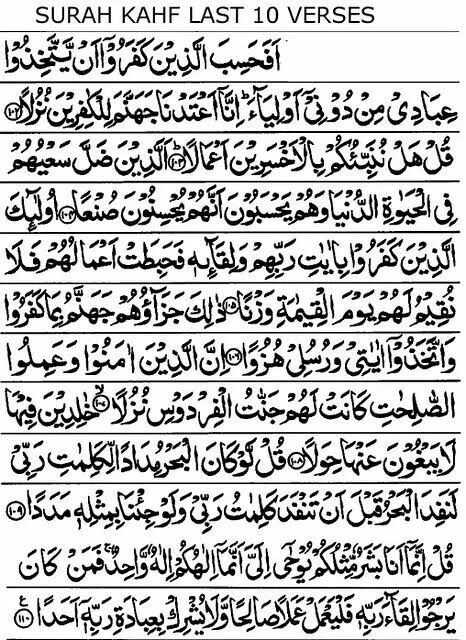 SURAH KAHF LAST 10 VERSES
اَفَحَسِبَ الَّذِيْنَ كَفَرُوْٓا اَنْ يَّتَّخِذُوْا
عِبَادِيْ مِنْ دُوْنِيْٓ اَوْلِيَآءَ ؕ اِنَّآ اَعْتَدْنَا جَهَنَّمَ لِلْكٰفِرِيْنَ نُزُلًا ﴿۱۰۲﴾
قُلْ هَلْ نُنَبِّئُكُمْ بِالْاَخْسَرِيْنَ اَعْمَالًا ؕ﴿۱۰۳﴾ اَلَّذِيْنَ ضَلَّ سَعْيُهُمْ
فِي الْحَيٰوةِ الدُّنْيَا وَهُمْ يَحْسَبُوْنَ اَنَّهُمْ يُحْسِنُوْنَ صُنْعًا ﴿۱۰۴﴾ اُولٰٓئِكَ
الَّذِيْنَ كَفَرُوْا بِاٰيٰتِ رَبِّهِمْ وَلِقَآئِهٖ فَحَبِطَتْ اَعْمَالُهُمْ فَلَا
نُقِيْمُ لَهُمْ يَوْمَ الْقِيٰمَةِ وَزْنًا ﴿۱۰۵﴾ ذٰلِكَ جَزَآؤُهُمْ جَهَنَّمُ بِمَا كَفَرُوْا
وَاتَّخَذُوْٓا اٰيٰتِيْ وَرُسُلِيْ هُزُوًا ﴿۱۰۶﴾ اِنَّ الَّذِيْنَ اٰمَنُوْا وَعَمِلُوا
الصّٰلِحٰتِ كَانَتْ لَهُمْ جَنّٰتُ الْفِرْدَوْسِ نُزُلًا ۙ﴿۱۰۷﴾ خٰلِدِيْنَ فِيْهَا
لَا يَبْغُوْنَ عَنْهَا حِوَلًا ﴿۱۰۸﴾ قُلْ لَّوْ كَانَ الْبَحْرُ مِدَادًا لِّكَلِمٰتِ رَبِّيْ
لَنَفِدَ الْبَحْرُ قَبْلَ اَنْ تَنْفَدَ كَلِمٰتُ رَبِّيْ وَلَوْ جِئْنَا بِمِثْلِهٖ مَدَدًا ﴿۱۰۹﴾
قُلْ اِنَّمَآ اَنَا بَشَرٌ مِّثْلُكُمْ يُوْحٰٓى اِلَيَّ اَنَّمَآ اِلٰهُكُمْ اِلٰهٌ وَّاحِدٌ ۚ فَمَنْ كَانَ
يَرْجُوْا لِقَآءَ رَبِّهٖ فَلْيَعْمَلْ عَمَلًا صَالِحًا وَّلَا يُشْرِكْ بِعِبَادَةِ رَبِّهٖٓ اَحَدًا ﴿۱۱۰﴾ ع